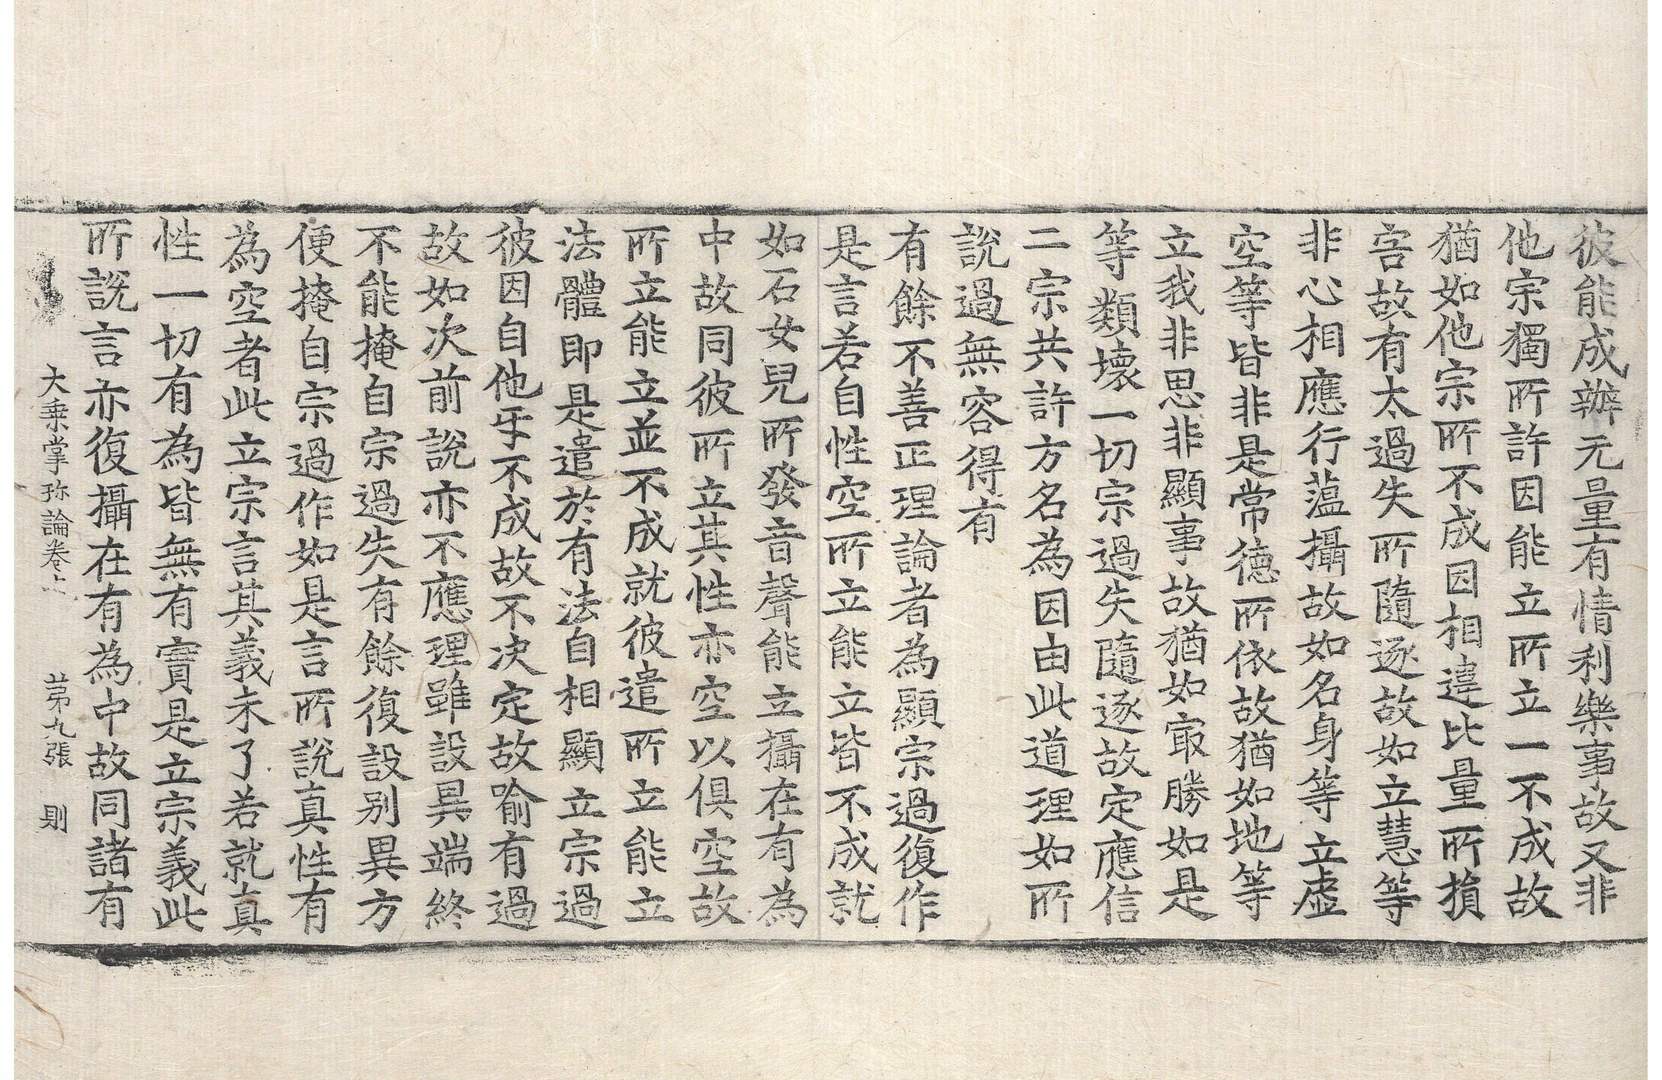 彼能成辦无量有情利樂事故又非
他宗獨所許因能立所立一不成故
猶如他宗所不成因相違比量所損
害故有太過失所隨逐故如立慧等
非心相應行薀攝故如名身等立虛
空等皆非是常德所依故猶如地等
立我非思非顯事故猶如㝡勝如是
等類壞一切宗過失隨逐故定應信
二宗共許方名為因由此道理如所
說過無容得有
有餘不善正理論者為顯宗過復作
是言若自性空所立能立皆不成就
如石女兒所發音聲能立攝在有為
中故同彼所立其性亦空以俱空故
所立能立並不成就彼遣所立能立
法體即是遣於有法自相顯立宗過
彼因自他㸦不成故不决定故喻有過
故如次前說亦不應理雖設異端終
不能掩自宗過失有餘復設別異方
便掩自宗過作如是言所說真性有
為空者此立宗言其義未了若就真
性一切有為皆無有實是立宗義此
所說言亦復攝在有為中故同諸有
大乘掌珎論卷上 第九張 則